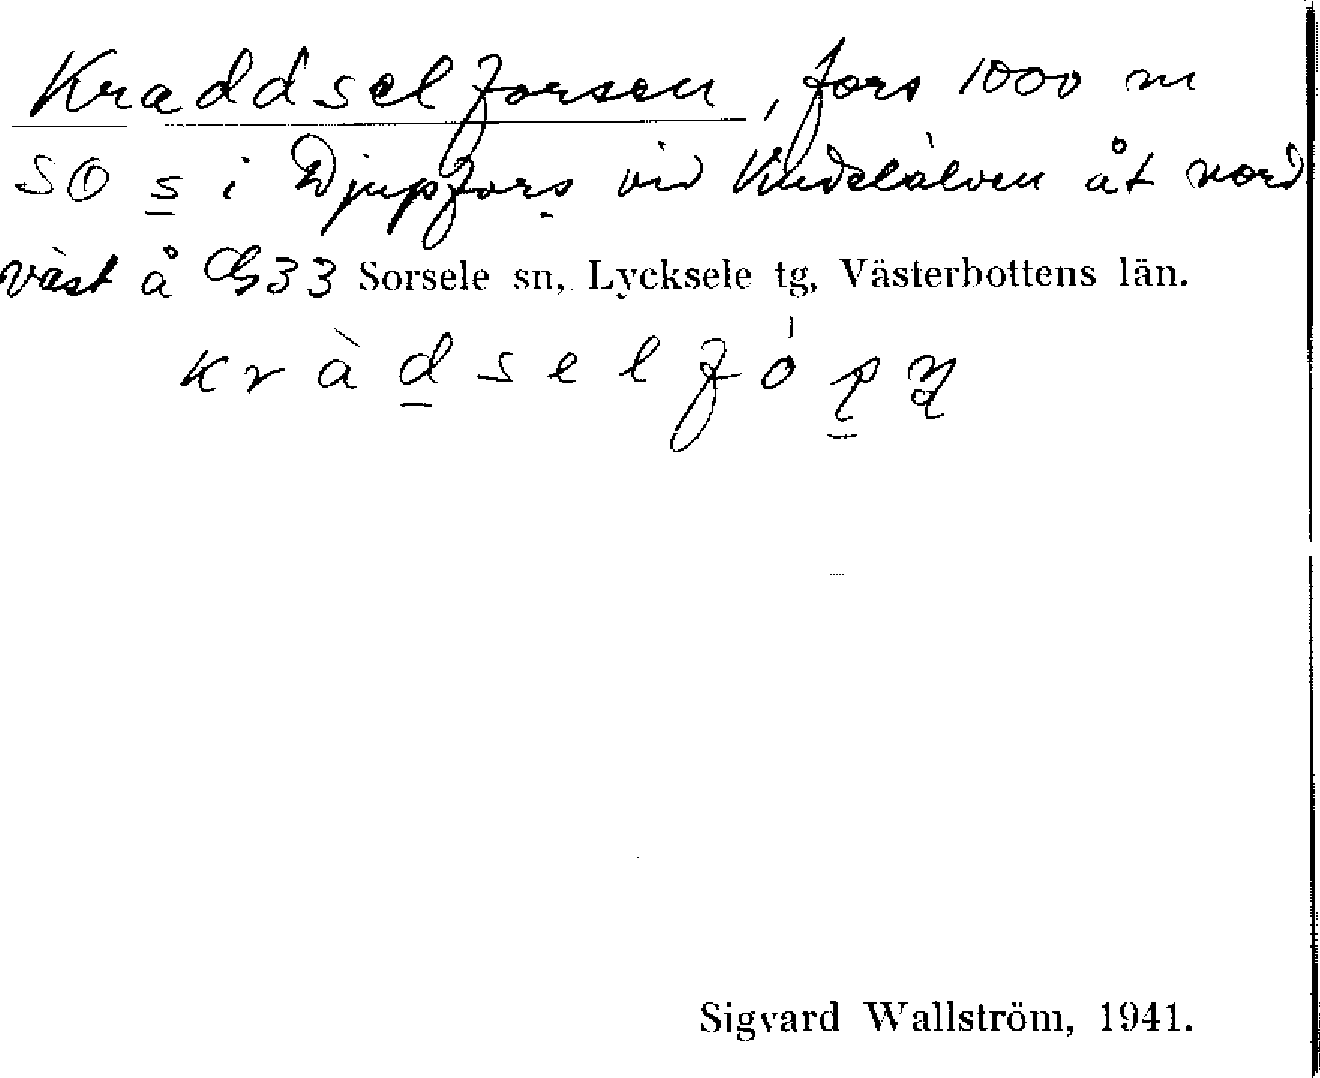 Kraddselforsen, fors 1000 m
SO s i Djupfors vid Vindelälven åt nord
väst å Cb33 Sorsele sn, Lycksele tg, Västerbottens län.
Sigvard Wallström, 1941.